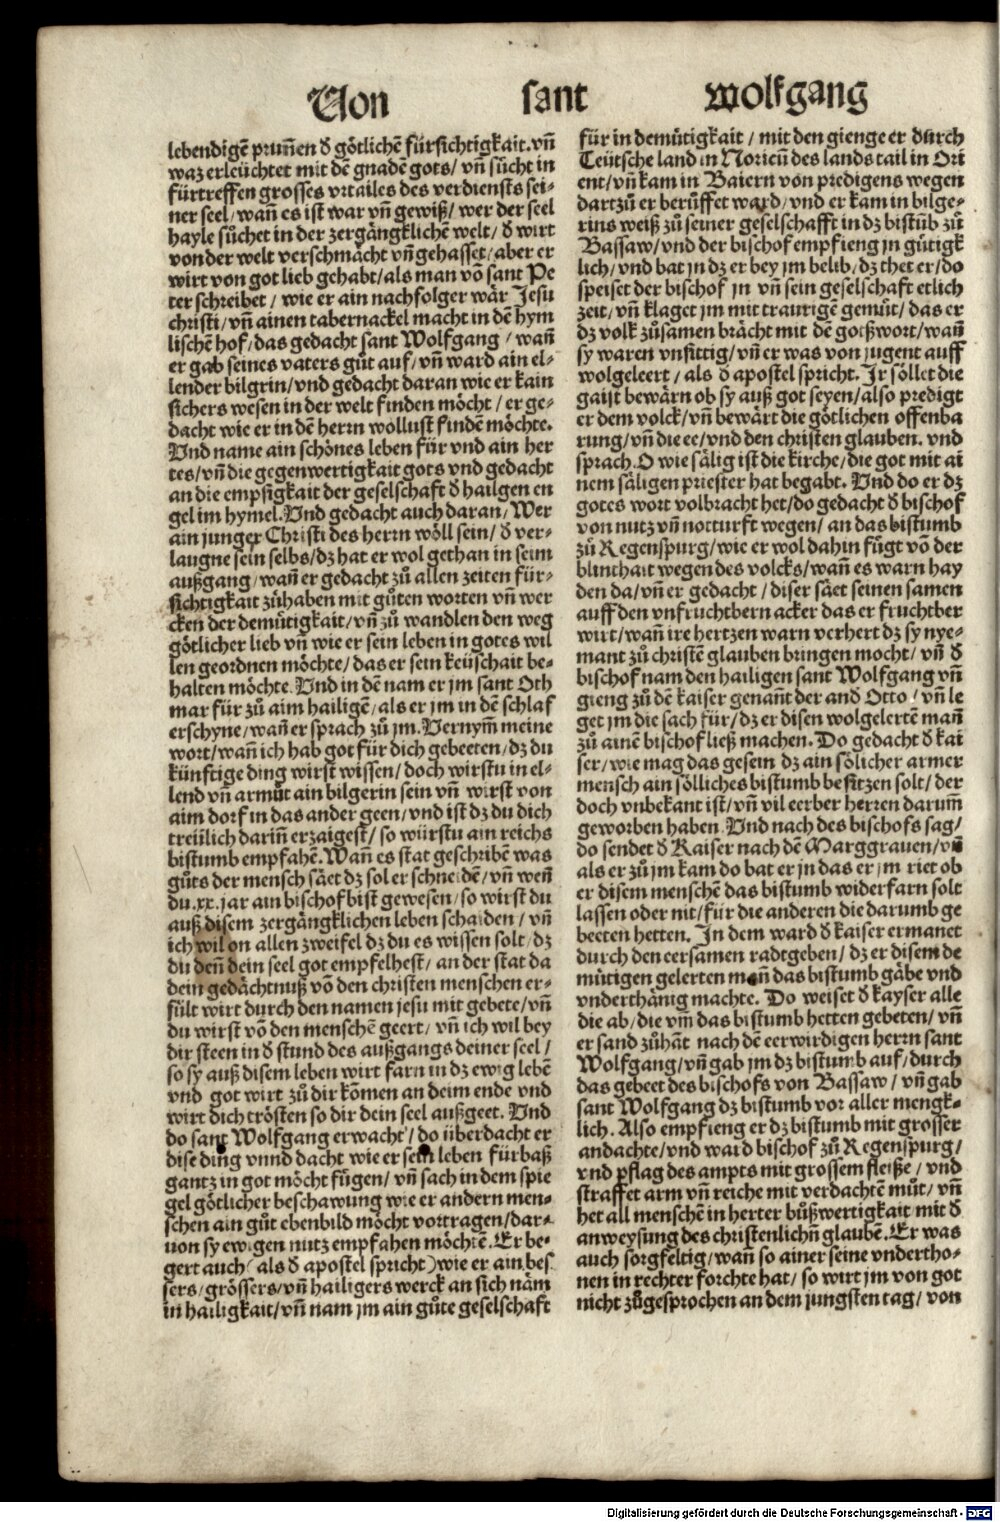 Von sant wolfgang
lebendigẽ prunnen d̕ götlichẽ fürsichtigkait. vñ
waz erleüchtet mit dẽ gnadẽ gots / vñ sůcht in
fürtreffen grosses vrtailes des verdiensts sei-
ner seel / wañ es ist war vñ gewiß / wer der seel
hayle sůchet in der zergängklichẽ welt / d̕ wirt
von der welt verschmächt vñ gehasset / aber er
wirt von got lieb gehabt / als man võ sant Pe
ter schreibet / wie er ain nachfolger wär Jesu
christi / vñ ainen tabernackel macht in dẽ hym
lischẽ hof / das gedacht sant Wolfgang / wañ
er gab seines vaters gůt auf / vñ ward ain el-
lender bilgrin / vnd gedacht daran wie er kain
sichers wesen in der welt finden möcht / er ge-
dacht wie er in dẽ herrn wollust findẽ möchte.
Vnd name ain schönes leben für vnd ain her
tes / vñ die gegenwertigkait gots vnd gedacht
an die empsigkait der geselschaft d̕ hailgen en
gel im hymel. Vnd gedacht auch daran / Wer
ain junger Christi des herrn wöll sein / d̕ ver-
laugne sein selbs / dz hat er wol gethan in seim
außgang / wañ er gedacht zů allen zeiten für-
sichtigkait zůhaben mit gůten worten vñ wer
cken der demütigkait / vñ zů wandlen den weg
götlicher lieb vñ wie er sein leben in gotes wil
len geordnen möchte / das er sein keüschait be-
halten möchte. Vnd in dẽ nam er jm sant Oth
mar für zů aim hailigẽ / als er jm in dẽ schlaf
erschyne / wañ er sprach zů jm. Vernym̃ meine
wort / wañ ich hab got für dich gebeeten / dz du
künftige ding wirst wissen / doch wirstu in el-
lend vñ armůt ain bilgerin sein vñ wirst von
aim dorf in das ander geen / vnd ist dz du dich
treülich dariñ erzaigest / so würstu ain reichs
bistumb empfahẽ. Wañ es stat geschribẽ was
gůts der mensch säet dz sol er schneidẽ / vñ weñ
du .xx. jar ain bischof bist gewesen / so wirst du
auß disem zergängklichen leben schaiden / vñ
ich wil on allen zweifel dz du es wissen solt / dz
du deñ dein seel got empfelhest / an der stat da
dein gedächtnuß võ den christen menschen er-
fült wirt durch den namen jesu mit gebete / vñ
du wirst võ den menschẽ geert / vñ ich wil bey
dir steen in d̕ stund des außgangs deiner seel /
so sy auß disem leben wirt farn in dz ewig lebẽ
vnd got wirt zů dir kõmen an deim ende vnd
wirt dich trösten so dir dein seel außgeet. Vnd
do sant Wolfgang erwacht / do überdacht er
dise ding vnnd dacht wie er sein leben fürbaß
gantz in got möcht fügen / vñ sach in dem spie
gel götlicher beschawung wie er andern men-
schen ain gůt ebenbild möcht vortragen / dar-
uon sy ewigen nutz empfahen möchtẽ. Er be-
gert auch (als d̕ apostel spricht) wie er ain bes
sers / grössers / vñ hailigers werck an sich näm
in hailigkait / vñ nam jm ain gůte geselschaft
für in demütigkait / mit den gienge er durch
Teütsche land in Noricũ des lands tail in Ori
ent / vñ kam in Baiern von predigens wegen
dartzů er berüffet ward / vnd er kam in bilge-
rins weiß zů seiner geselschafft in dz bistũb zů
Bassaw / vnd der bischof empfieng jn gütigk
lich / vnd bat jn dz er bey jm belib / dz thet er / do
speiset der bischof jn vñ sein geselschaft etlich
zeit / vñ klaget jm mit traurigẽ gemüt / das er
dz volk zůsamen brächt mit dẽ gotßwort / wañ
sy waren vnsittig / vñ er was von jugent auff
wolgeleert / als d̕ apostel spricht. Ir söllet die
gaist bewärn ob sy auß got seyen / also predigt
er dem volck / vñ bewärt die götlichen offenba
rung / vñ die ee / vnd den christen glauben. vnd
sprach. O wie sälig ist die kirche / die got mit ai
nem säligen priester hat begabt. Vnd do er dz
gotes wort volbracht het / do gedacht d̕ bischof
von nutz vñ notturft wegen / an das bistumb
zů Regenspurg / wie er wol dahin fügt võ der
blinthait wegen des volcks / wañ es warn hay
den da / vñ er gedacht / diser säet seinen samen
auff den vnfruchtbern acker das er fruchtber
wirt / wañ ire hertzen warn verhert dz sy nye-
mant zů christẽ glauben bringen mocht / vñ d̕
bischof nam den hailigen sant Wolfgang vñ
gieng zů dẽ kaiser genañt der and̕ Otto / vñ le
get jm die sach für / dz er disen wolgelertẽ mañ
zů ainẽ bischof ließ machen. Do gedacht d̕ kai
ser / wie mag das gesein dz ain sölicher armer
mensch ain sölliches bistumb besitzen solt / der
doch vnbekant ist / vñ vil eerber herren darum̃
geworben haben. Vnd nach des bischofs sag /
do sendet d̕ Kaiser nach dẽ Marggrauen / vñ
als er zů jm kam do bat er jn das er jm riet ob
er disem menschẽ das bistumb widerfarn solt
lassen oder nit / für die anderen die darumb ge
beeten hetten. In dem ward d̕ kaiser ermanet
durch den eersamen radtgeben / dz er disem de
mütigen gelerten mañ das bistumb gäbe vnd
vnderthänig machte. Do weiset d̕ kayser alle
die ab / die vm̃ das bistumb hetten gebeten / vñ
er sand zůhāt nach dẽ eerwirdigen herrn sant
Wolfgang / vñ gab jm dz bistumb auf / durch
das gebeet des bischofs von Bassaw / vñ gab
sant Wolfgang dz bistumb vor aller mengk-
lich. Also empfieng er dz bistumb mit grosser
andachte / vnd ward bischof zů Regenspurg /
vnd pflag des ampts mit grossem fleiße / vnd
straffet arm vñ reiche mit verdachtẽ můt / vñ
het all menschẽ in herter bůßwertigkait mit d̕
anweysung des christenlichñ glaubẽ. Er was
auch sorgfeltig / wañ so ainer seine vndertho-
nen in rechter forchte hat / so wirt jm von got
nicht zůgesprochen an dem jungsten tag / von
Digitalisierung gefördert durch die Deutsche Forschungsgemeinschaft - DFG